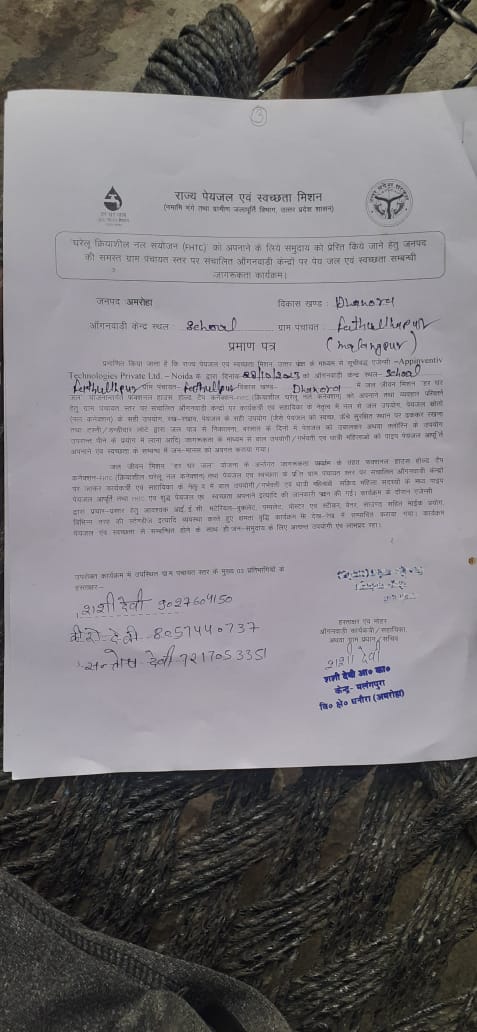 3
राज्य पेयजल एवं स्वच्छता मिशन
(नमामि गंगे तथा ग्रामीण जलापूर्ति विभाग, उत्तर प्रदेश शासन)
घरेलू क्रियाशील नल संयोजन (FHTC) को अपनाने के लिये समुदाय को प्रेरित किये जाने हेतु जनपद
की समस्त ग्राम पंचायत स्तर पर संचालित आँगनवाड़ी केन्द्रों पर पेय जल एवं स्वच्छता सम्बन्धी
जागरूकता कार्यक्रम।
जनपद: अमरोहा विकास खण्ड: Dhanora
आँगनवाड़ी केन्द्र स्थल: School ग्राम पंचायत: Fathullapur
प्रमाण पत्र
प्रमाणित किया जाता है कि राज्य पेयजल एवं स्वच्छता मिशन, उत्तर प्रदेश के माध्यम से सूचीबद्ध एजेन्सी -Appinventiv
Technologies Private Ltd. - Noida के द्वारा दिनांक /10/2023 को आँगनवाड़ी केन्द्र स्थल- School
ग्राम पंचायत- विकास खण्ड- Dhanora में जल जीवन मिशन "हर घर
जल" योजनान्तर्गत फंक्शनल हाउस होल्ड टैप कनेक्शन-FHTC (क्रियाशील घरेलू नल कनेक्शन) को अपनाने तथा व्यवहार परिवर्तन
हेतु ग्राम पंचायत स्तर पर संचालित आँगनवाड़ी केन्द्रों पर कार्यकर्त्री एवं सहायिका के नेतृत्व में नल से जल उपयोग, पेयजल स्रोतों
(नल कनेक्शन) के सही उपयोग, रख-रखाव, पेयजल के सही उपयोग (जैसे पेयजल को स्वच्छ, ऊँचे सुरक्षित स्थान पर ढककर रखना
तथा टोटी/डण्डीदार लोटे द्वारा जल पात्र से निकालना, बरसात के दिनों में पेयजल को उबालकर अथवा क्लोरिन के उपयोग
उपरान्त पीने के प्रयोग में लाना आदि) जागरूकता के माध्यम से बाल उपयोगी/गर्भवती एवं धात्री महिलाओं को पाइप पेयजल आपूर्ति
अपनाने एवं स्वच्छता के सम्बन्ध में जन-मानस को अवगत कराया गया।
जल जीवन मिशन "हर घर जल" योजना के अर्न्तगत जागरूकता कार्यक्रम के तहत फंक्शनल हाउस होल्ड टैप
कनेक्शन-FHTC (क्रियाशील घरेलू नल कनेक्शन) तथा पेयजल एवं स्वच्छता के प्रति ग्राम पंचायत स्तर पर संचालित आँगनवाड़ी केन्द्रों
पेयजल आपूर्ति तथा FHTC एवं शुद्ध पेयजल एवं स्वच्छता अपनाने इत्यादि की जानकारी प्रदान की गई। कार्यक्रम के दौरान एजेन्सी
द्वारा प्रचार-प्रसार हेतु आवश्यक आई.ई.सी. मटेरियल-बुकलेट, पम्पलेट, पोस्टर एवं स्टीकर, बैनर, साउण्ड सहित माईक प्रयोग,
विभिन्न तरह की स्टेण्डीज इत्यादि व्यवस्था करते हुए क्षमता वृद्धि कार्यक्रम के देख-रेख में सम्पादित कराया गया। कार्यक्रम
पेयजल एवं स्वच्छता से सम्बन्धित होने के साथ ही जन-समुदाय के लिए अत्यन्त उपयोगी एवं लाभप्रद रहा।
उपरोक्त कार्यक्रम में उपस्थित ग्राम पंचायत स्तर के मुख्य 03 प्रतिभागियों के
हस्ताक्षर-
शशी देवी 9027604150
वीरो देवी 8057440737
सन्तोष देवी 9217053351
हस्ताक्षर एवं मोहर
आँगनवाड़ी कार्यकर्त्री/सहायिका
अथवा ग्राम प्रधान/सचिव
शशी देवी
शशी देवी आ० का०
केन्द्र- मलंगपुरा
वि० क्षे० धनौरा (अमरोहा)